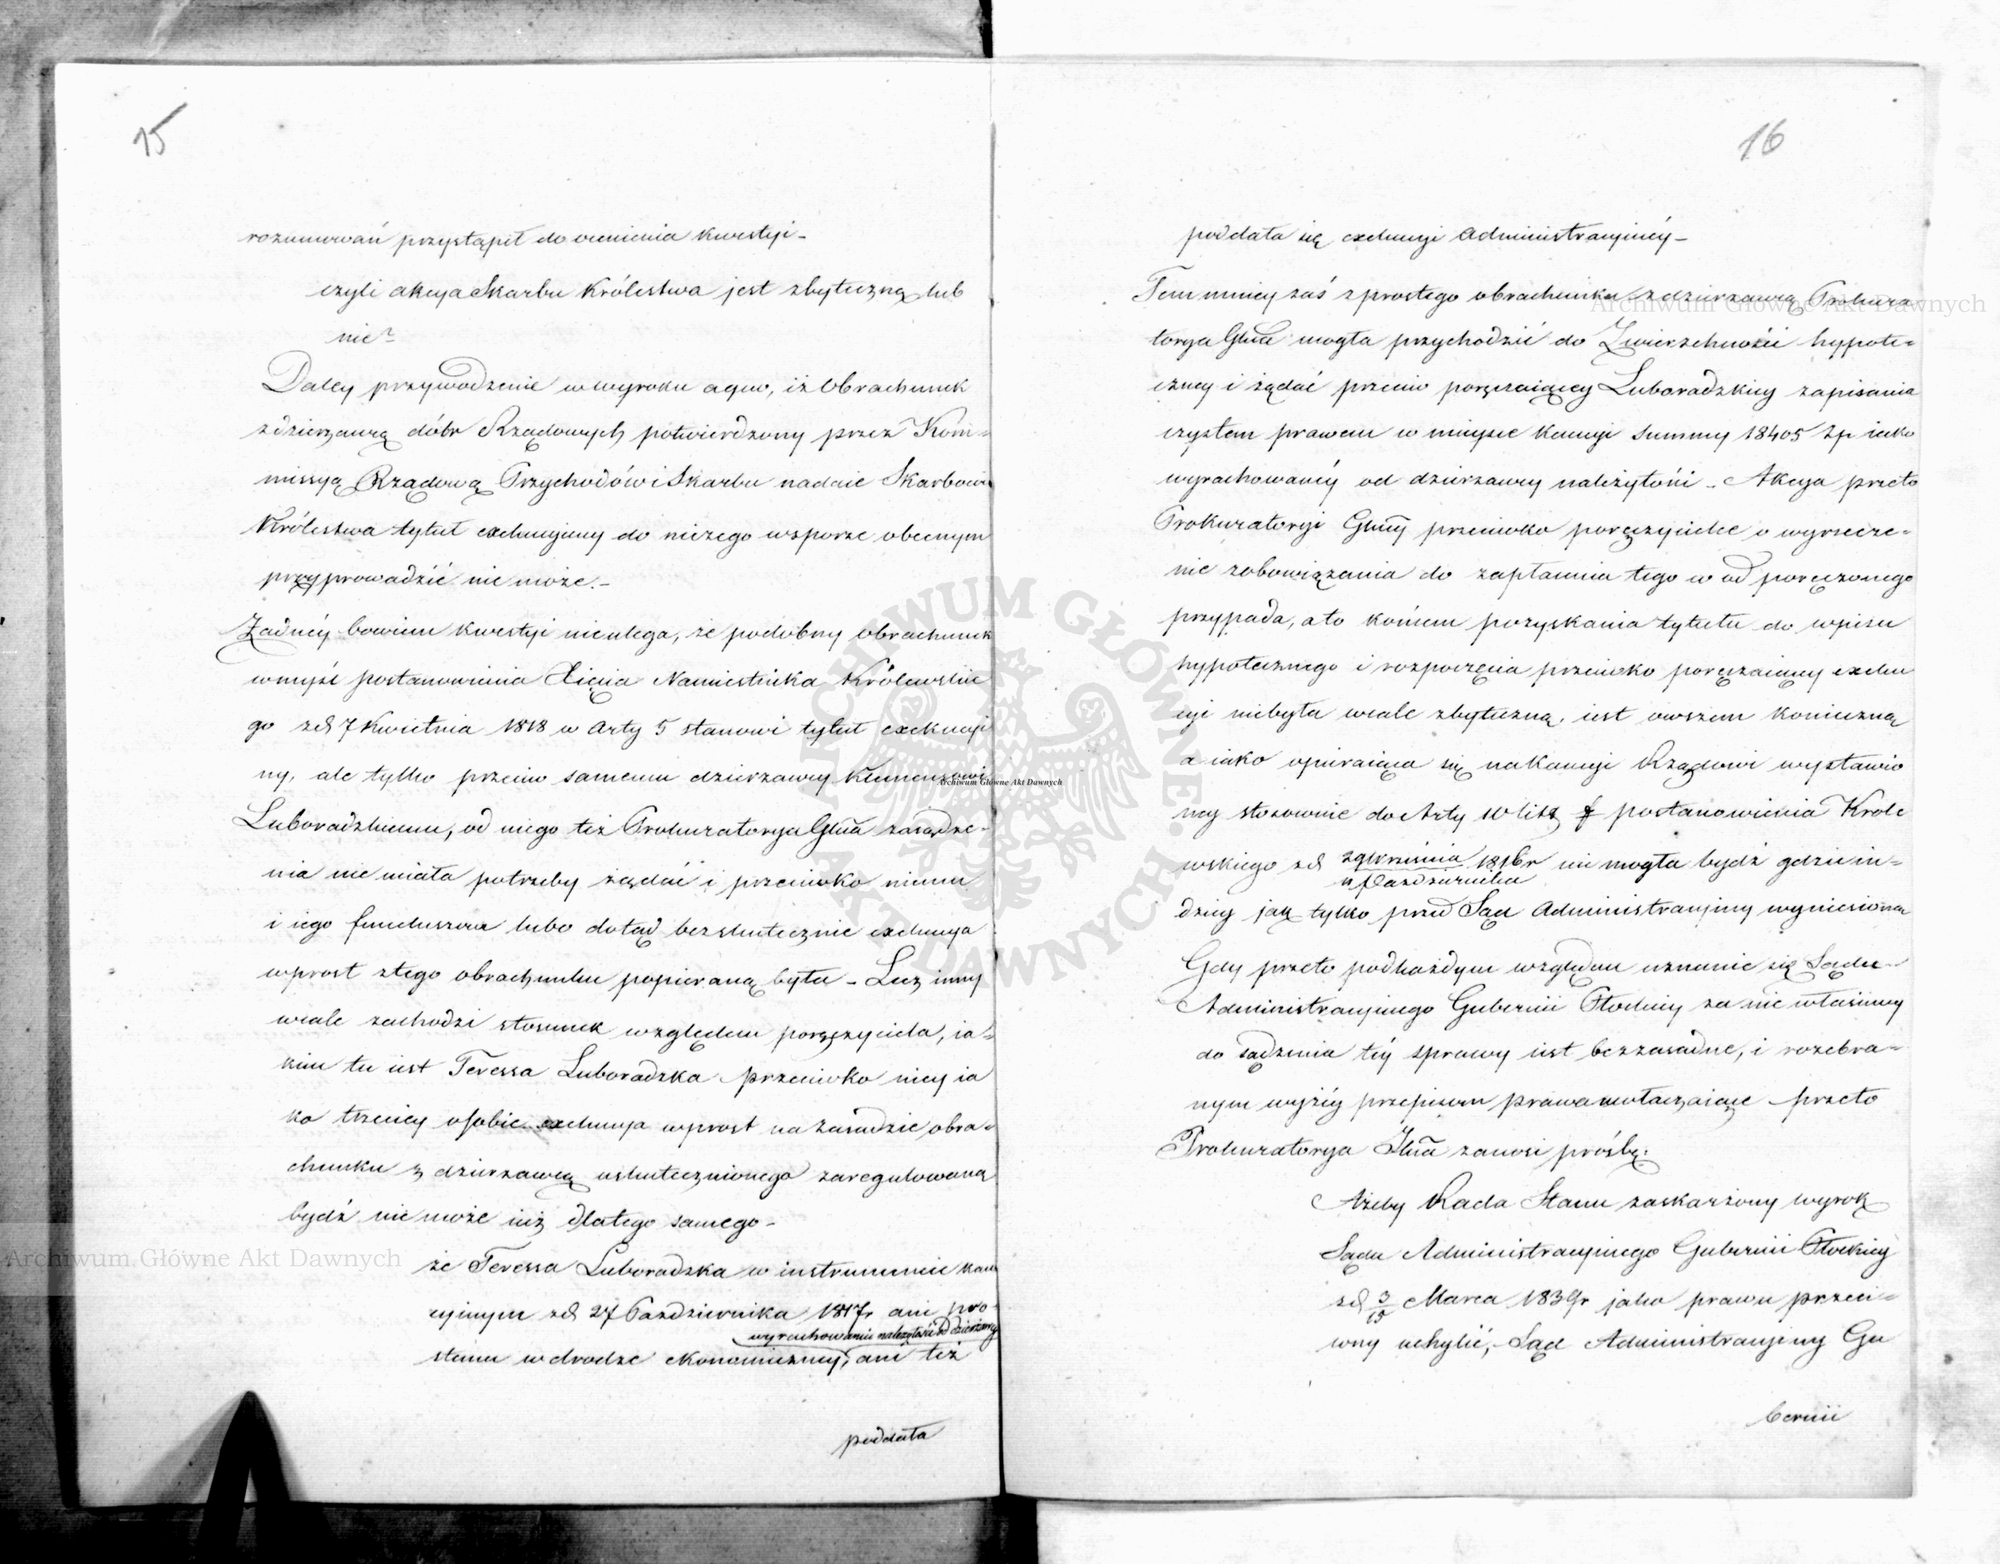 15
rozumowań przystąpił do ocenienia kwestyi –
czyli akcya Skarbu Królestwa jest zbyteczną lub
nie?
Daley przywodzenie w wyroku a quo, iż Obrachunek
z dzierzawcą dóbr Rządowych potwierdzony przez Kom-
missyą Rządową Przychodów i Skarbu nadaie Skarbowi
Królestwa tytuł exekucyiny do niczego w sporze obecnym
przyprowadzić nie może. –
Żadnéy bowiem kwestyi nieulega, że podobny obrachunek
w myśl postanowienia Xięcia Namiestnika Królewskie
go z d 7 Kwietnia 1818 w Arty 5 stanowi tytuł exekucyi
ny, ale tylko przeciw samemu dzierzawcy Klemensowi
Luboradzkiemu, od niego też Prokuratorya Głna zasądze-
nia nie miała potrzeby żądać i przeciwko niemu
i iego funduszowi lubo dotąd bezskutecznie exekucya
wprost z tego obrachunku popieraną była – Lecz inny
wcale zachodzi stosunek względem poręczyciela, ia-
kim tu iest Teressa Luboradzka przeciwko niey ia
ko trzeciey osobie exekucya wprost na zasadzie obra-
chunku z dzierzawcą uskutecznionego zaregulowaną
bydź nie może iuż dlatego samego –
że Teressa Luboradzka w instrumencie kau
cyinym z d 27 Października 1817r ani pro
wyrachowaniu należytości od dzierżawcy
stemu w drodze ekonomiczney, ani też
poddała
16
poddała się exekucyi Administracyinéy –
Tem mniey zaś z prostego obrachunku z dzierzawcą Prokura
torya Głna mogła przychodzić do Zwierzchności hypote-
czney i żądać przeciw poręczaiącey Luboradzkiey zapisania
czystem prawem w mieysce kaucyi Summy 18405 Zp iako
wyrachowanéy od dzierzawcy należytości – Akcya przeto
Prokuratoryi Głnéy przeciwko poręczycielce o wyrzecze-
nie zobowiązania do zapłacenia tego co od poręczonego
przypada, a to końcem pozyskania tytułu do wpisu
hypotecznego i rozpoczęcia przeciwko poręczaiącey exeku
cyi niebyła wcale zbyteczną, iest owszem konieczną
a iako opieraiąca się na kaucyi Rządowi wystawio
ney stosownie do Arty 10 lit f postanowienia Króle
wskiego z d 29 Września 1816r nie mogła bydź gdziein-
11 Października
dziey jak tylko przed Sąd Administracyiny wyniesiona
Gdy przeto pod każdym względem uznanie się Sądu
Administracyinego Gubernii Płockiey za nie właściwy
do sądzenia téy sprawy iest bezzasadne, i rozebra-
nym wyżéy przepisom prawa uwłaczaiące przeto
Prokuratorya Głna zanosi prośbę.
Ażeby Rada Stanu zaskarżony wyrok
Sądu Administracyinego Gubernii Płockiey
z d 3/15 Marca 1839r jako prawu przeci-
wny uchylić, Sąd Administracyiny Gu
bernii
Archiwum Główne Akt Dawnych
Archiwum Główne Akt Dawnych
Archiwum Główne Akt Dawnych
ARCHIWUM GŁÓWNE AKT DAWNYCH